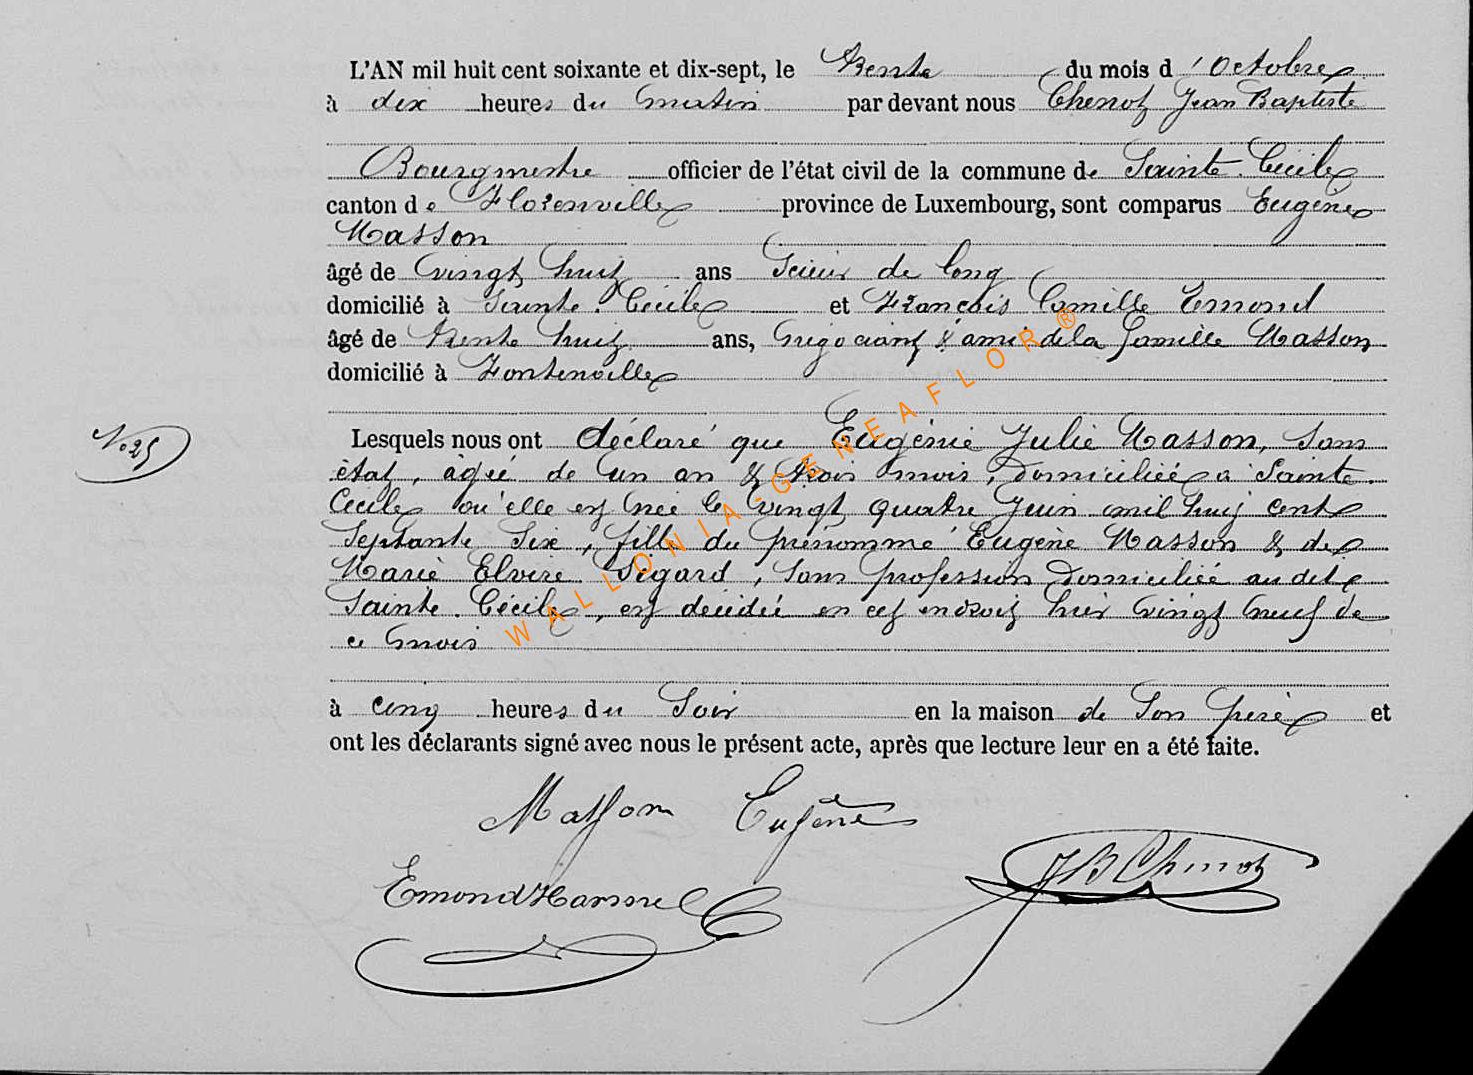 L'AN mil huit cent soixante et dix-sept, le Trente du mois d'Octobre
à dix heures du matin par devant nous Chenot Jean Baptiste
Bourgmestre officier de l'état civil de la commune de Sainte-Cécile
canton de Florenville province de Luxembourg, sont comparus Eugène
Masson
âgé de vingt huit ans Scieur de long
domicilié à Sainte-Cécile et François Camille Emond
âgé de Trente huit ans, Négociant & ami de la famille Masson
domicilié à Fontenoille
Lesquels nous ont déclaré que Eugénie Julie Masson, Sans
No 25
état, âgée de un an & trois mois, domiciliée à Sainte-
Cécile où elle est née le vingt quatre Juin mil huit cent
Septante Six, fille du prénommé Eugène Masson & de
Marie Elvire Sigard, Sans profession domiciliée au dit
Sainte-Cécile, est décédée en cet endroit hier vingt neuf de
ce mois
à cinq heures du Soir en la maison de Son père et
ont les déclarants signé avec nous le présent acte, après que lecture leur en a été faite.
Masson Eugène
JB Chenot
Emond Hansel
WALLONIA-GENEAFLOR ®